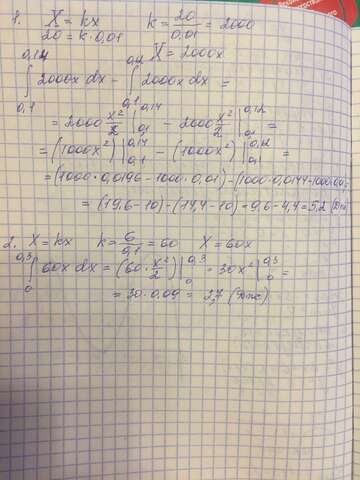 1. X = kx k = 20/0,01 = 2000
20 = k·0,01 X = 2000x
∫_{0,1}^{0,14} 2000x dx - ∫_{0,1}^{0,12} 2000x dx =
= 2000 x²/2 |_{0,1}^{0,14} - 2000 x²/2 |_{0,1}^{0,12} =
= (1000x²)|_{0,1}^{0,14} - (1000x²)|_{0,1}^{0,12} =
= (1000·0,0196 - 1000·0,01) - (1000·0,0144 - 1000·0,0
= (19,6 - 10) - (14,4 - 10) = 9,6 - 4,4 = 5,2 (Дж)
2. X = kx k = 6/0,1 = 60 X = 60x
∫_{0}^{0,3} 60x dx = (60·x²/2)|_{0}^{0,3} = 30x²|_{0}^{0,3} =
= 30·0,09 = 2,7 (Дж)